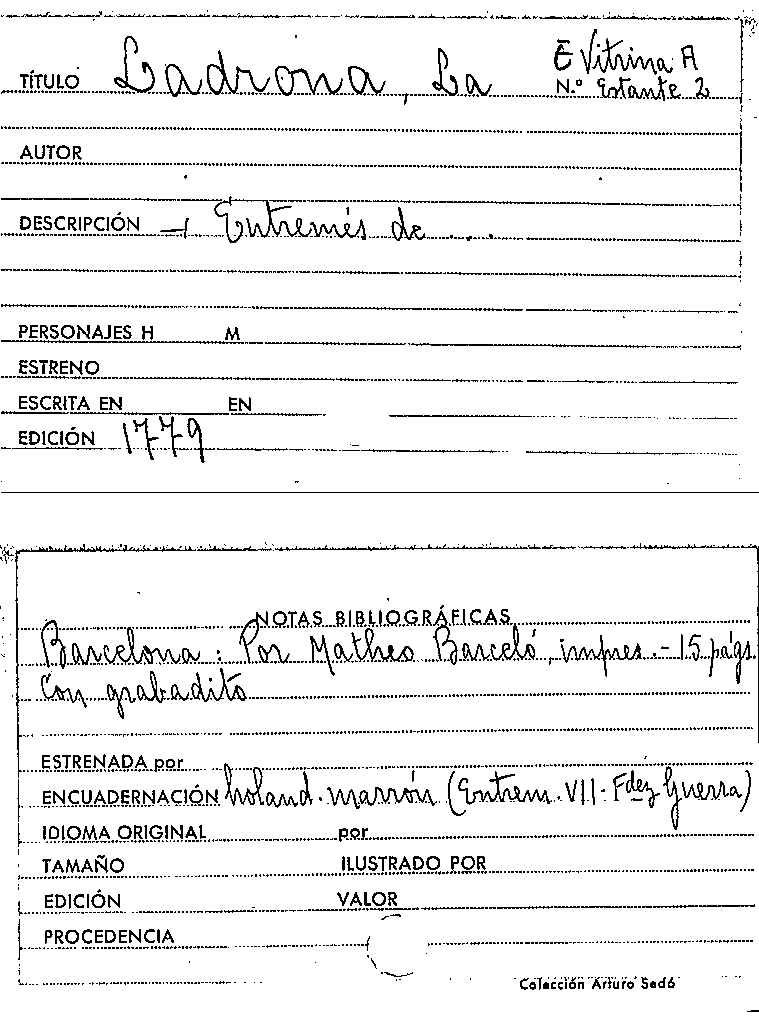 TÍTULO Ladrona, La E Vitrina A
N.º Estante 2
AUTOR
DESCRIPCIÓN → Entremés de ...
PERSONAJES H M
ESTRENO
ESCRITA EN EN
EDICIÓN 1779
NOTAS BIBLIOGRÁFICAS
Barcelona : Por Matheo Barceló, impres.- 15 págs.
Con grabadito
ESTRENADA por
ENCUADERNACIÓN holand. marrón (Entrem. VII - Fdez Guerra)
IDIOMA ORIGINAL por
TAMAÑO ILUSTRADO POR
EDICIÓN VALOR
PROCEDENCIA
Colección Arturo Sedó